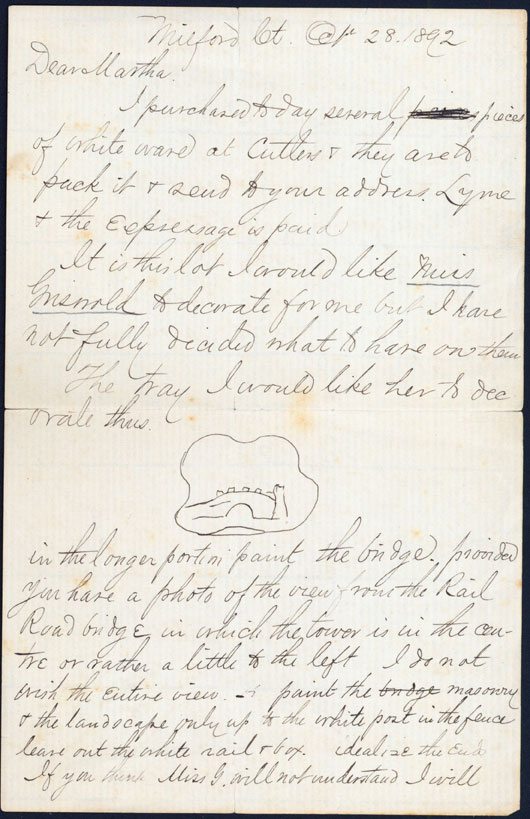 Milford Ct. Oct 28. 1892
Dear Martha.
I purchased to day several pieces
of white ware at Cutlers & they are to
pack it & send to your address. Lyme
& the expressage is paid
It is this lot I would like Miss
Griswold to decorate for me but I have
not fully decided what to have on them
The tray I would like her to dec
orate thus.
in the longer portion paint the bridge. provided
you have a photo of the view from the Rail
Road bridge in which the tower is in the cen-
tre or rather a little to the left I do not
wish the entire view. - paint the bridge masonry
& the landscape only up to the white post in the fence
leave out the white rail & box. idealize the End
If you think Miss G. will not understand I will